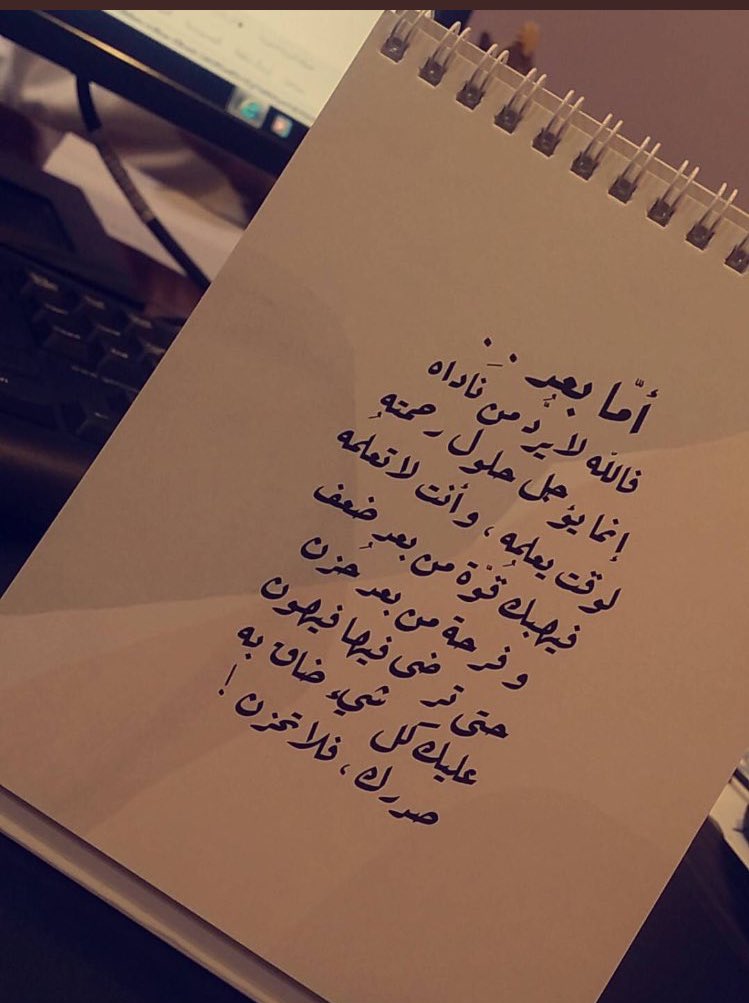 أمّا بعد ..
فالله لا يُردّ من نَاداه
إنما يؤجل حلول رحمته
لوقت يعلمهُ ، وأنت لا تعلمه
فيهبك قُوّة من بعد ضعف
وفرحة من بعد حُزن
حتى ترضى فيها فيهون
عليك كل شيءٍ ضاق به
صدرك ، فلا تحزن !